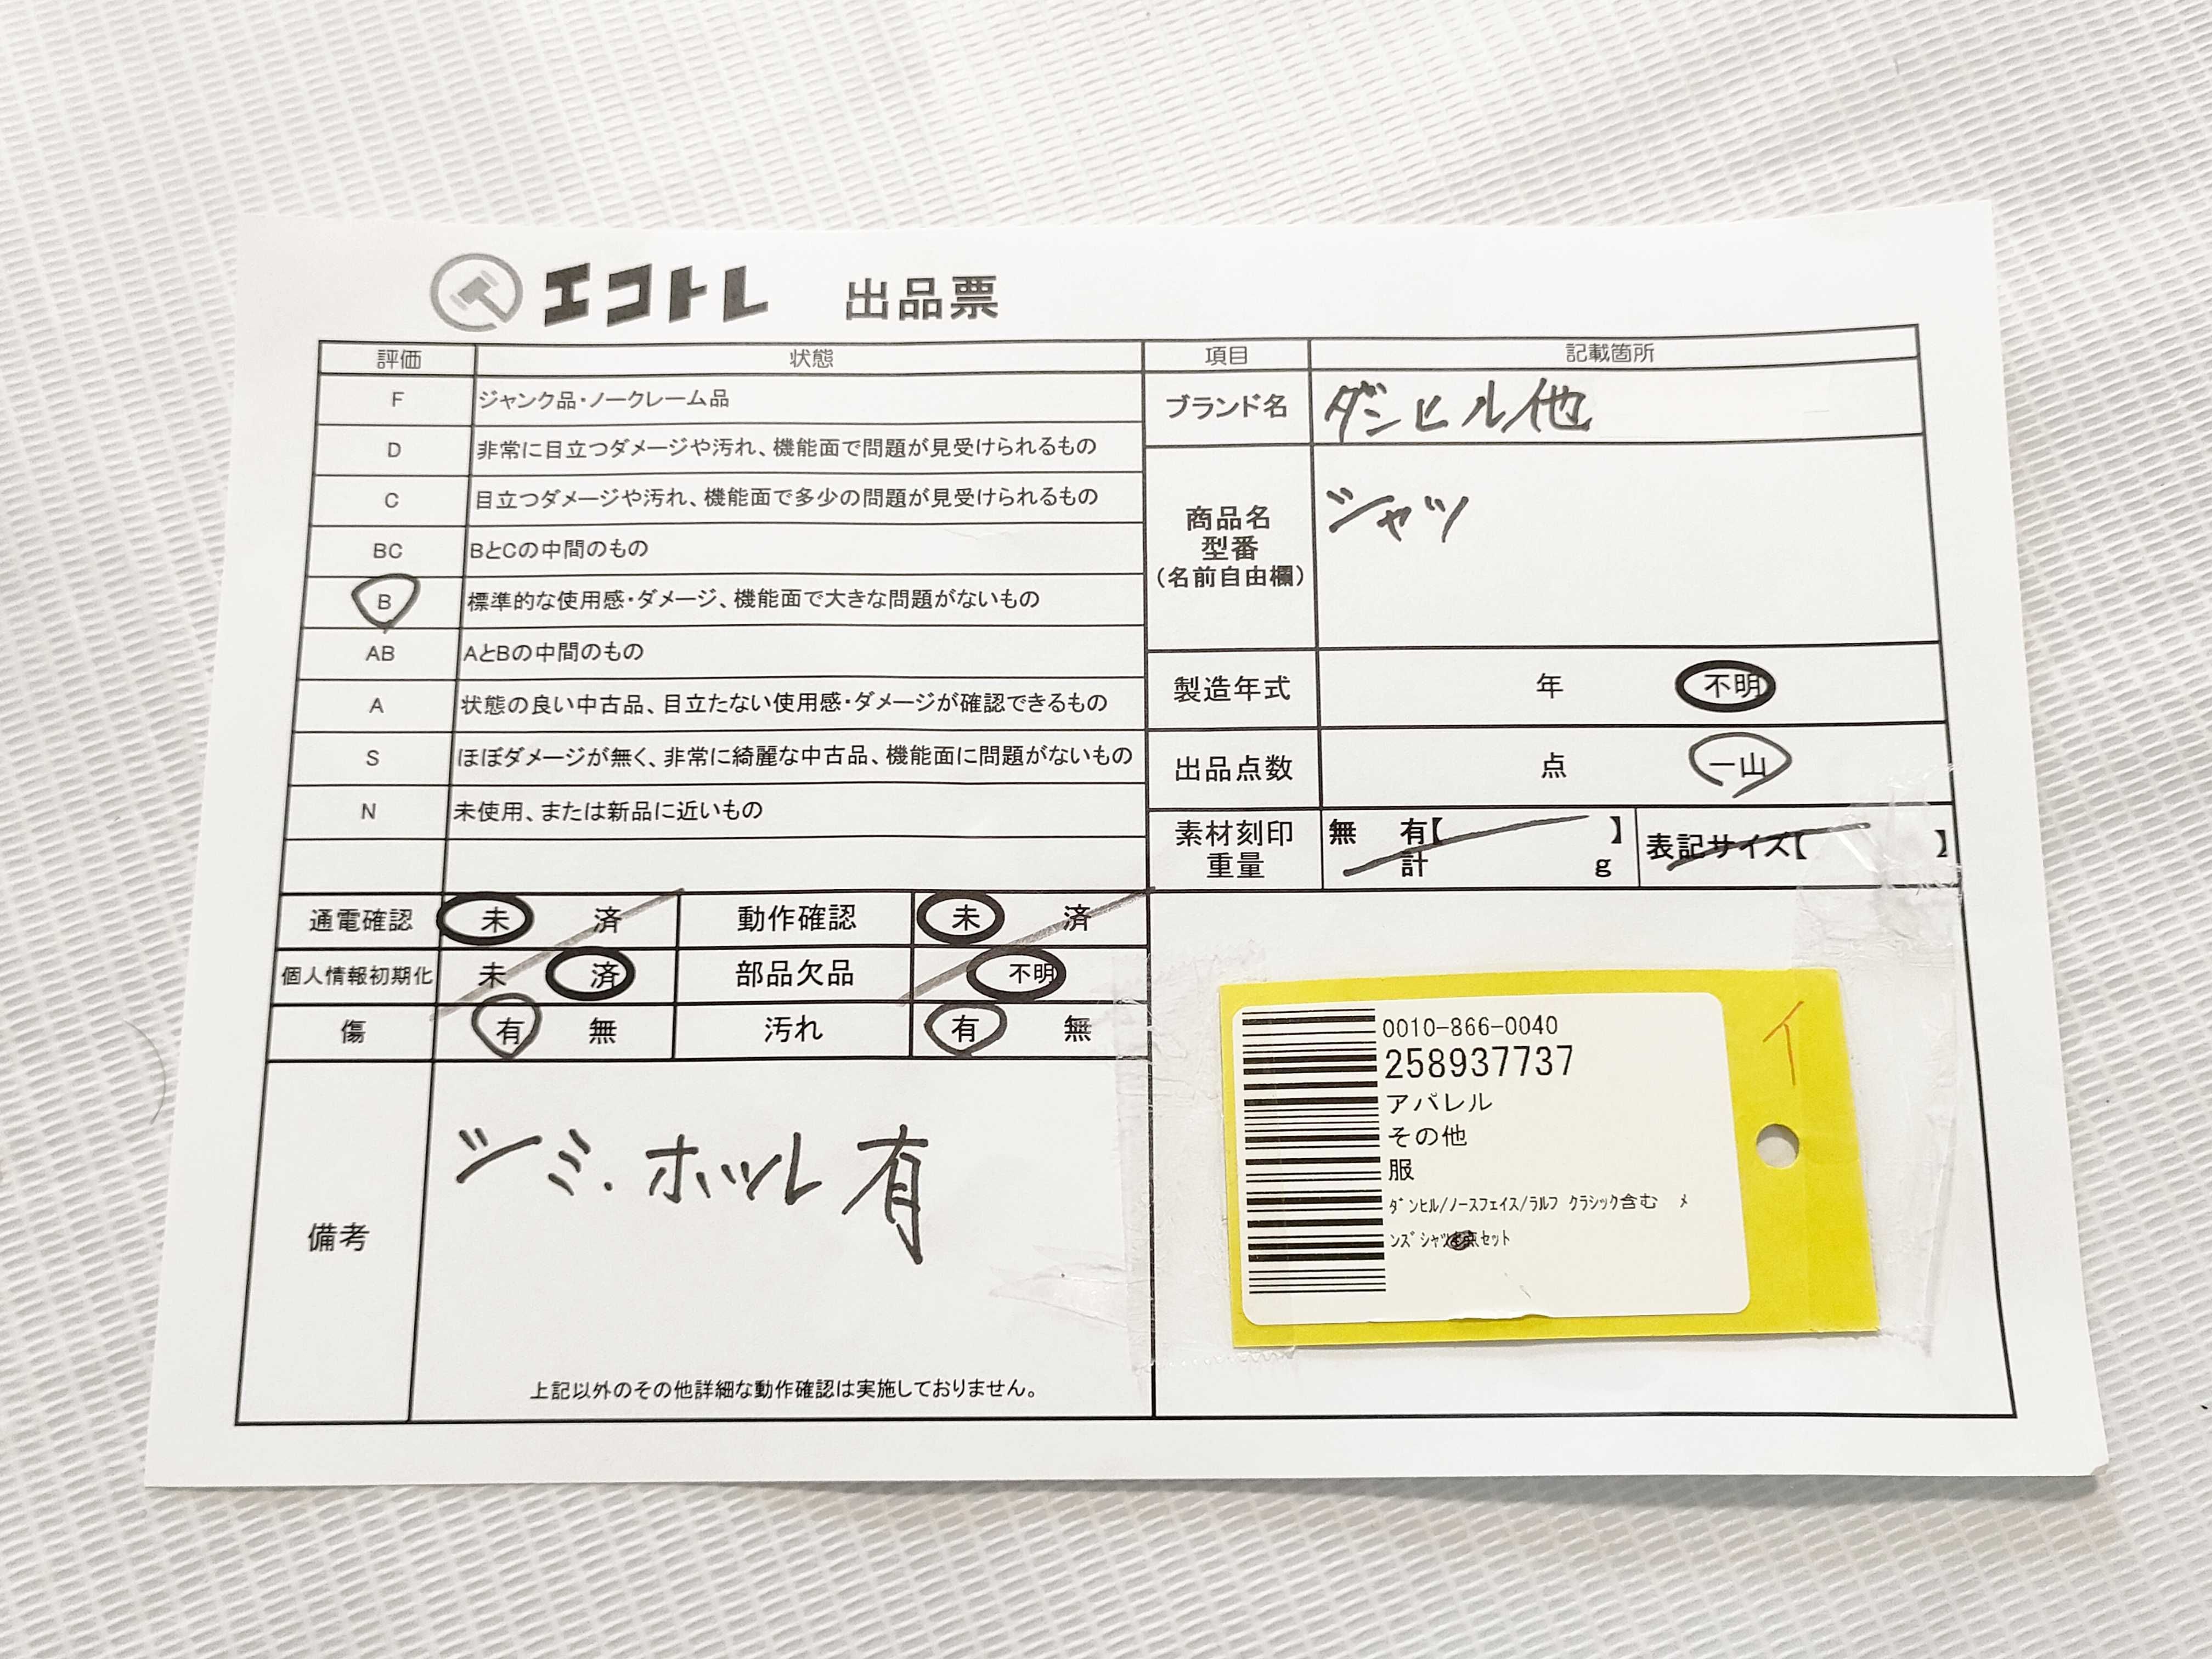 エコトレ 出品票
評価 状態
F ジャンク品・ノークレーム品
D 非常に目立つダメージや汚れ、機能面で問題が見受けられるもの
C 目立つダメージや汚れ、機能面で多少の問題が見受けられるもの
BC BとCの中間のもの
B 標準的な使用感・ダメージ、機能面で大きな問題がないもの
AB AとBの中間のもの
A 状態の良い中古品、目立たない使用感・ダメージが確認できるもの
S ほぼダメージが無く、非常に綺麗な中古品、機能面に問題がないもの
N 未使用、または新品に近いもの
通電確認 未 済 動作確認 未 済
個人情報初期化 未 済 部品欠品 不明
傷 有 無 汚れ 有 無
備考
シミ・ホツレ有
上記以外のその他詳細な動作確認は実施しておりません。
項目 記載箇所
ブランド名 ダンヒル他
商品名
型番
(名前自由欄)
シャツ
製造年式 年 不明
出品点数 点 一山
素材刻印
重量
無 有【 】
計 g
表記サイズ【 】
0010-866-0040
258937737
アパレル
その他
服
ダンヒル/ノースフェイス/ラルフ クラシック含む メ
ンズシャツ 点セット
イ